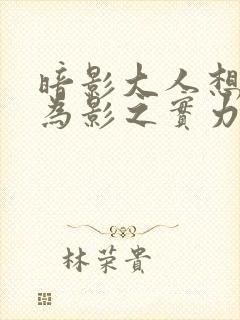 暗影大人想
為影之實力
林荣貴